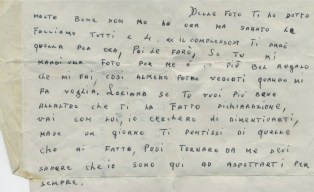 DELLE FOTO TI HO DETTO
MOLTO BENE NON NE HO ORA MA SABATO LE
FACCIAMO TUTTI E 4 E IL COMPLESSO TI DARÒ
QUELLA PER ORA, POI LE FARÒ, SE TU MI
MANDI UNA FOTO PER ME È IL PIÙ BEL REGALO
CHE MI FAI, COSÌ ALMENO POTRÒ VEDERTI QUANDO MI
FA VOGLIA. LORIANA SE TU VUOI PIÙ BENE
ALL'ALTRO CHE TI HA FATTO DICHIARAZIONE,
VAI CON LUI, IO CERCHERÒ DI DIMENTICARTI,
MA SE UN GIORNO TI PENTISSI DI QUELLO
CHE HAI FATTO, PUOI TORNARE DA ME DEVI
SAPERE CHE IO SONO QUI AD ASPETTARTI PER
SEMPRE.